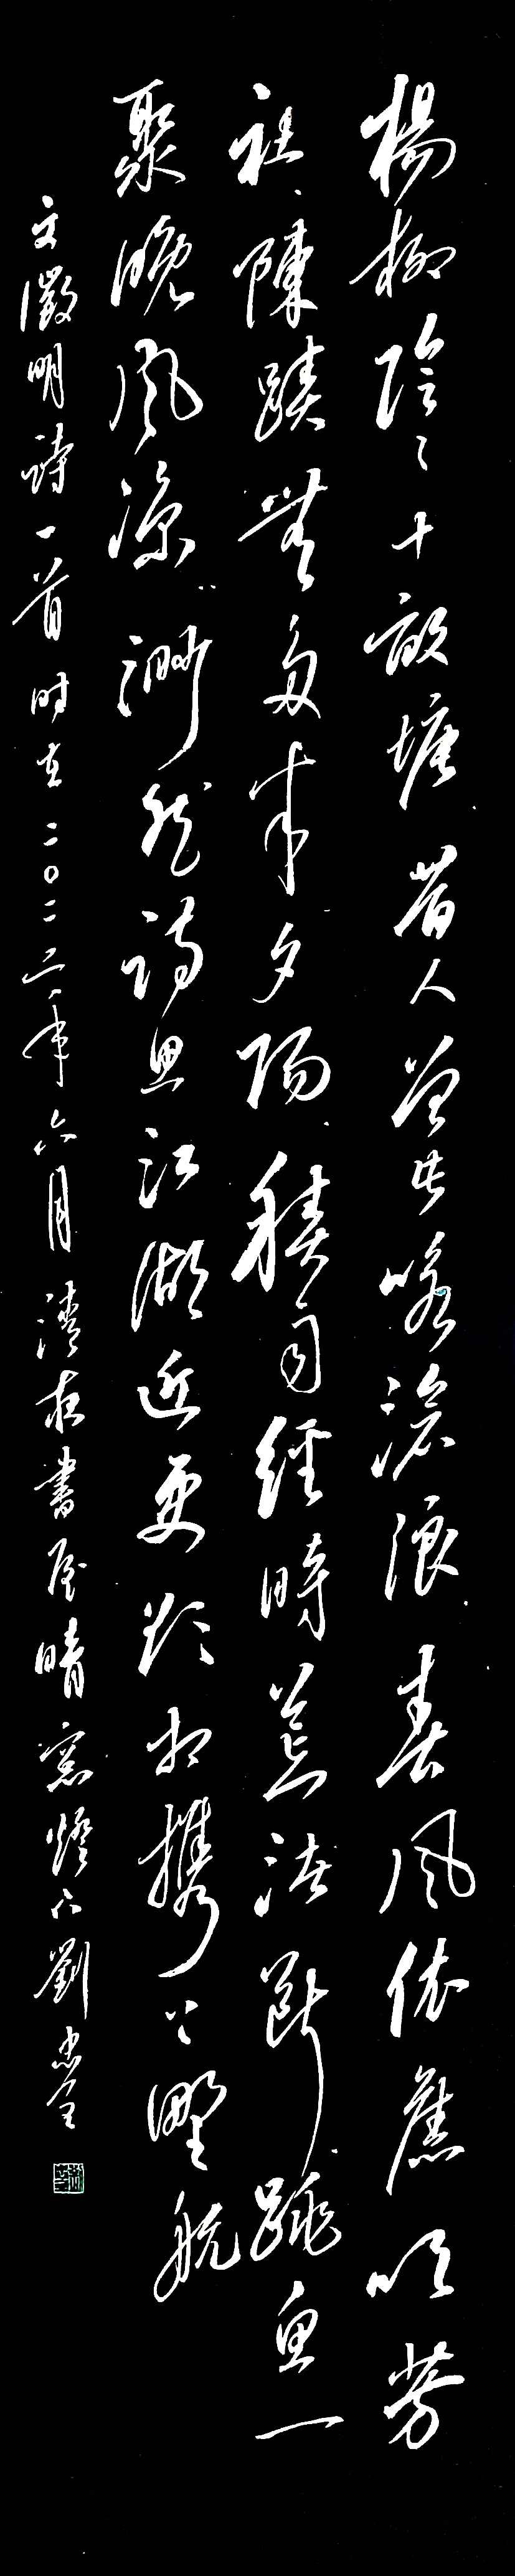 楊柳陰〻十畝塘昔人曾此咏滄浪春風依舊吹芳
杜陳蹟無多半夕陽積雨經時荒渚斷跳魚一
聚晚風涼渺然詩思江湖近更欲相攜上野航
文徵明詩一首時在二〇二二年六月書屋晴窗燈下劉忠全